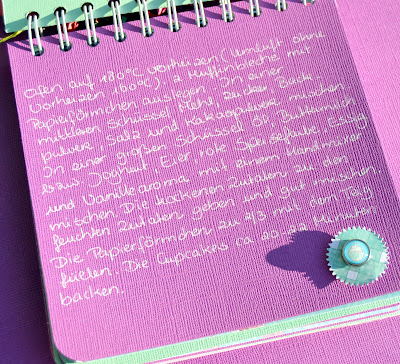 Ofen auf 180°C vorheizen (Umluft ohne
Vorheizen 160°C). 2 Muffinbleche mit
Papierförmchen auslegen. In einer
mittleren Schüssel Mehl, Zucker, Back-
pulver, Salz und Kakaopulver mischen.
In einer großen Schüssel Öl, Buttermilch
bzw. Joghurt, Eier, rote Speisefarbe, Essig
und Vanillearoma mit einem Handmixer
mischen. Die trockenen Zutaten zu den
feuchten Zutaten geben und gut mischen.
Die Papierförmchen zu 2/3 mit dem Teig
füllen. Die Cupcakes ca 20-22 Minuten
backen.